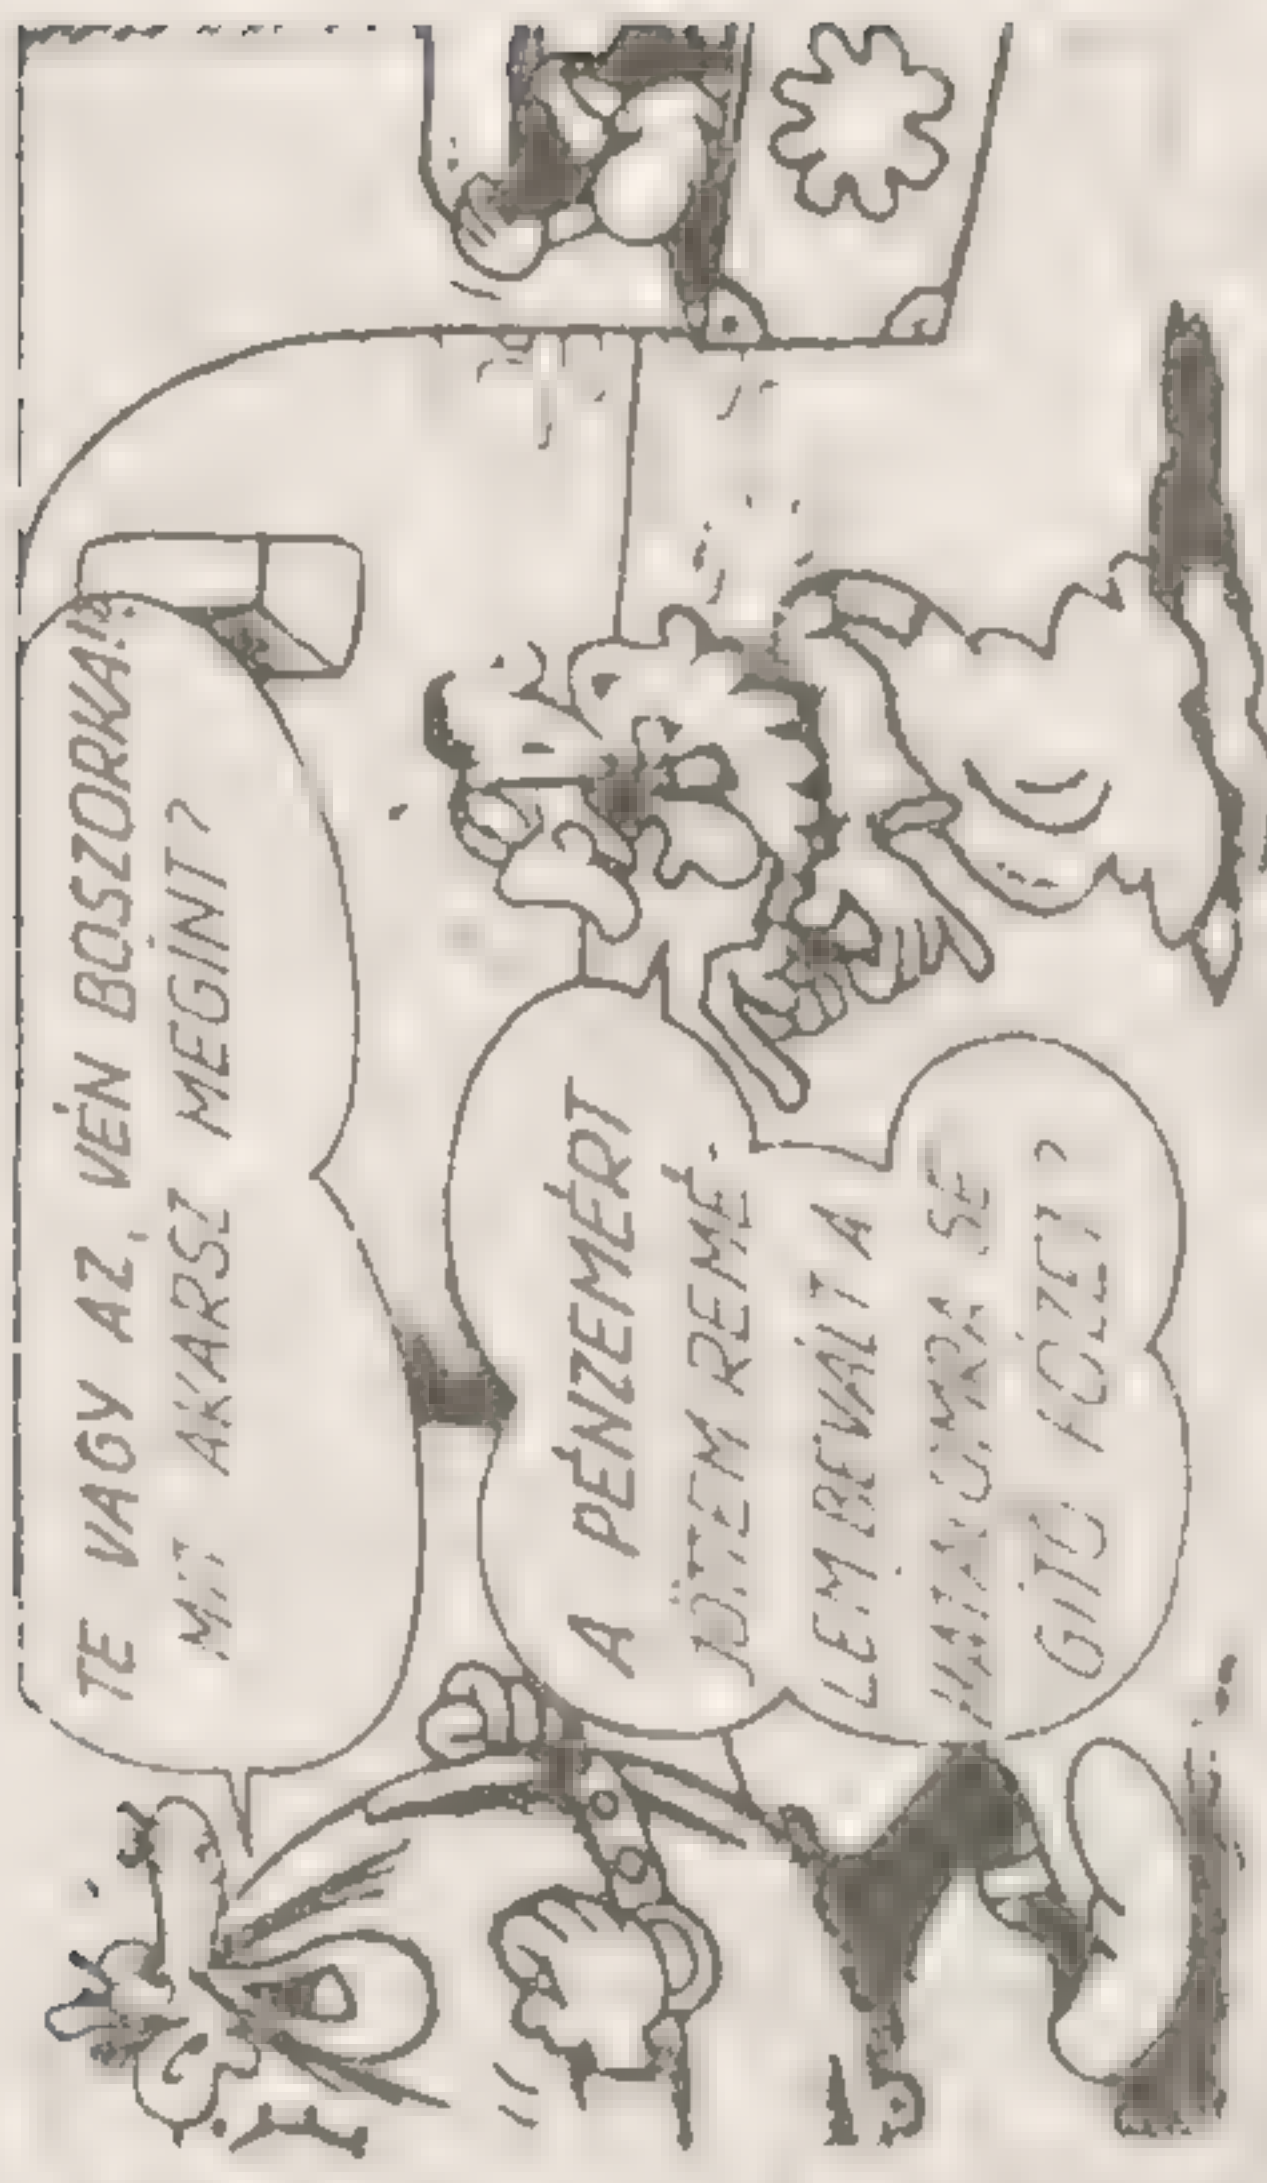 TE VAGY AZ, VÉN BOSZORKA!?
MIT AKARSZ MEGINT?
A PÉNZEMÉRT
JÖTTEM REMÉ-
LEM BEVÁLT A
HATALOMRA SE
GÍTŐ FŐZET?